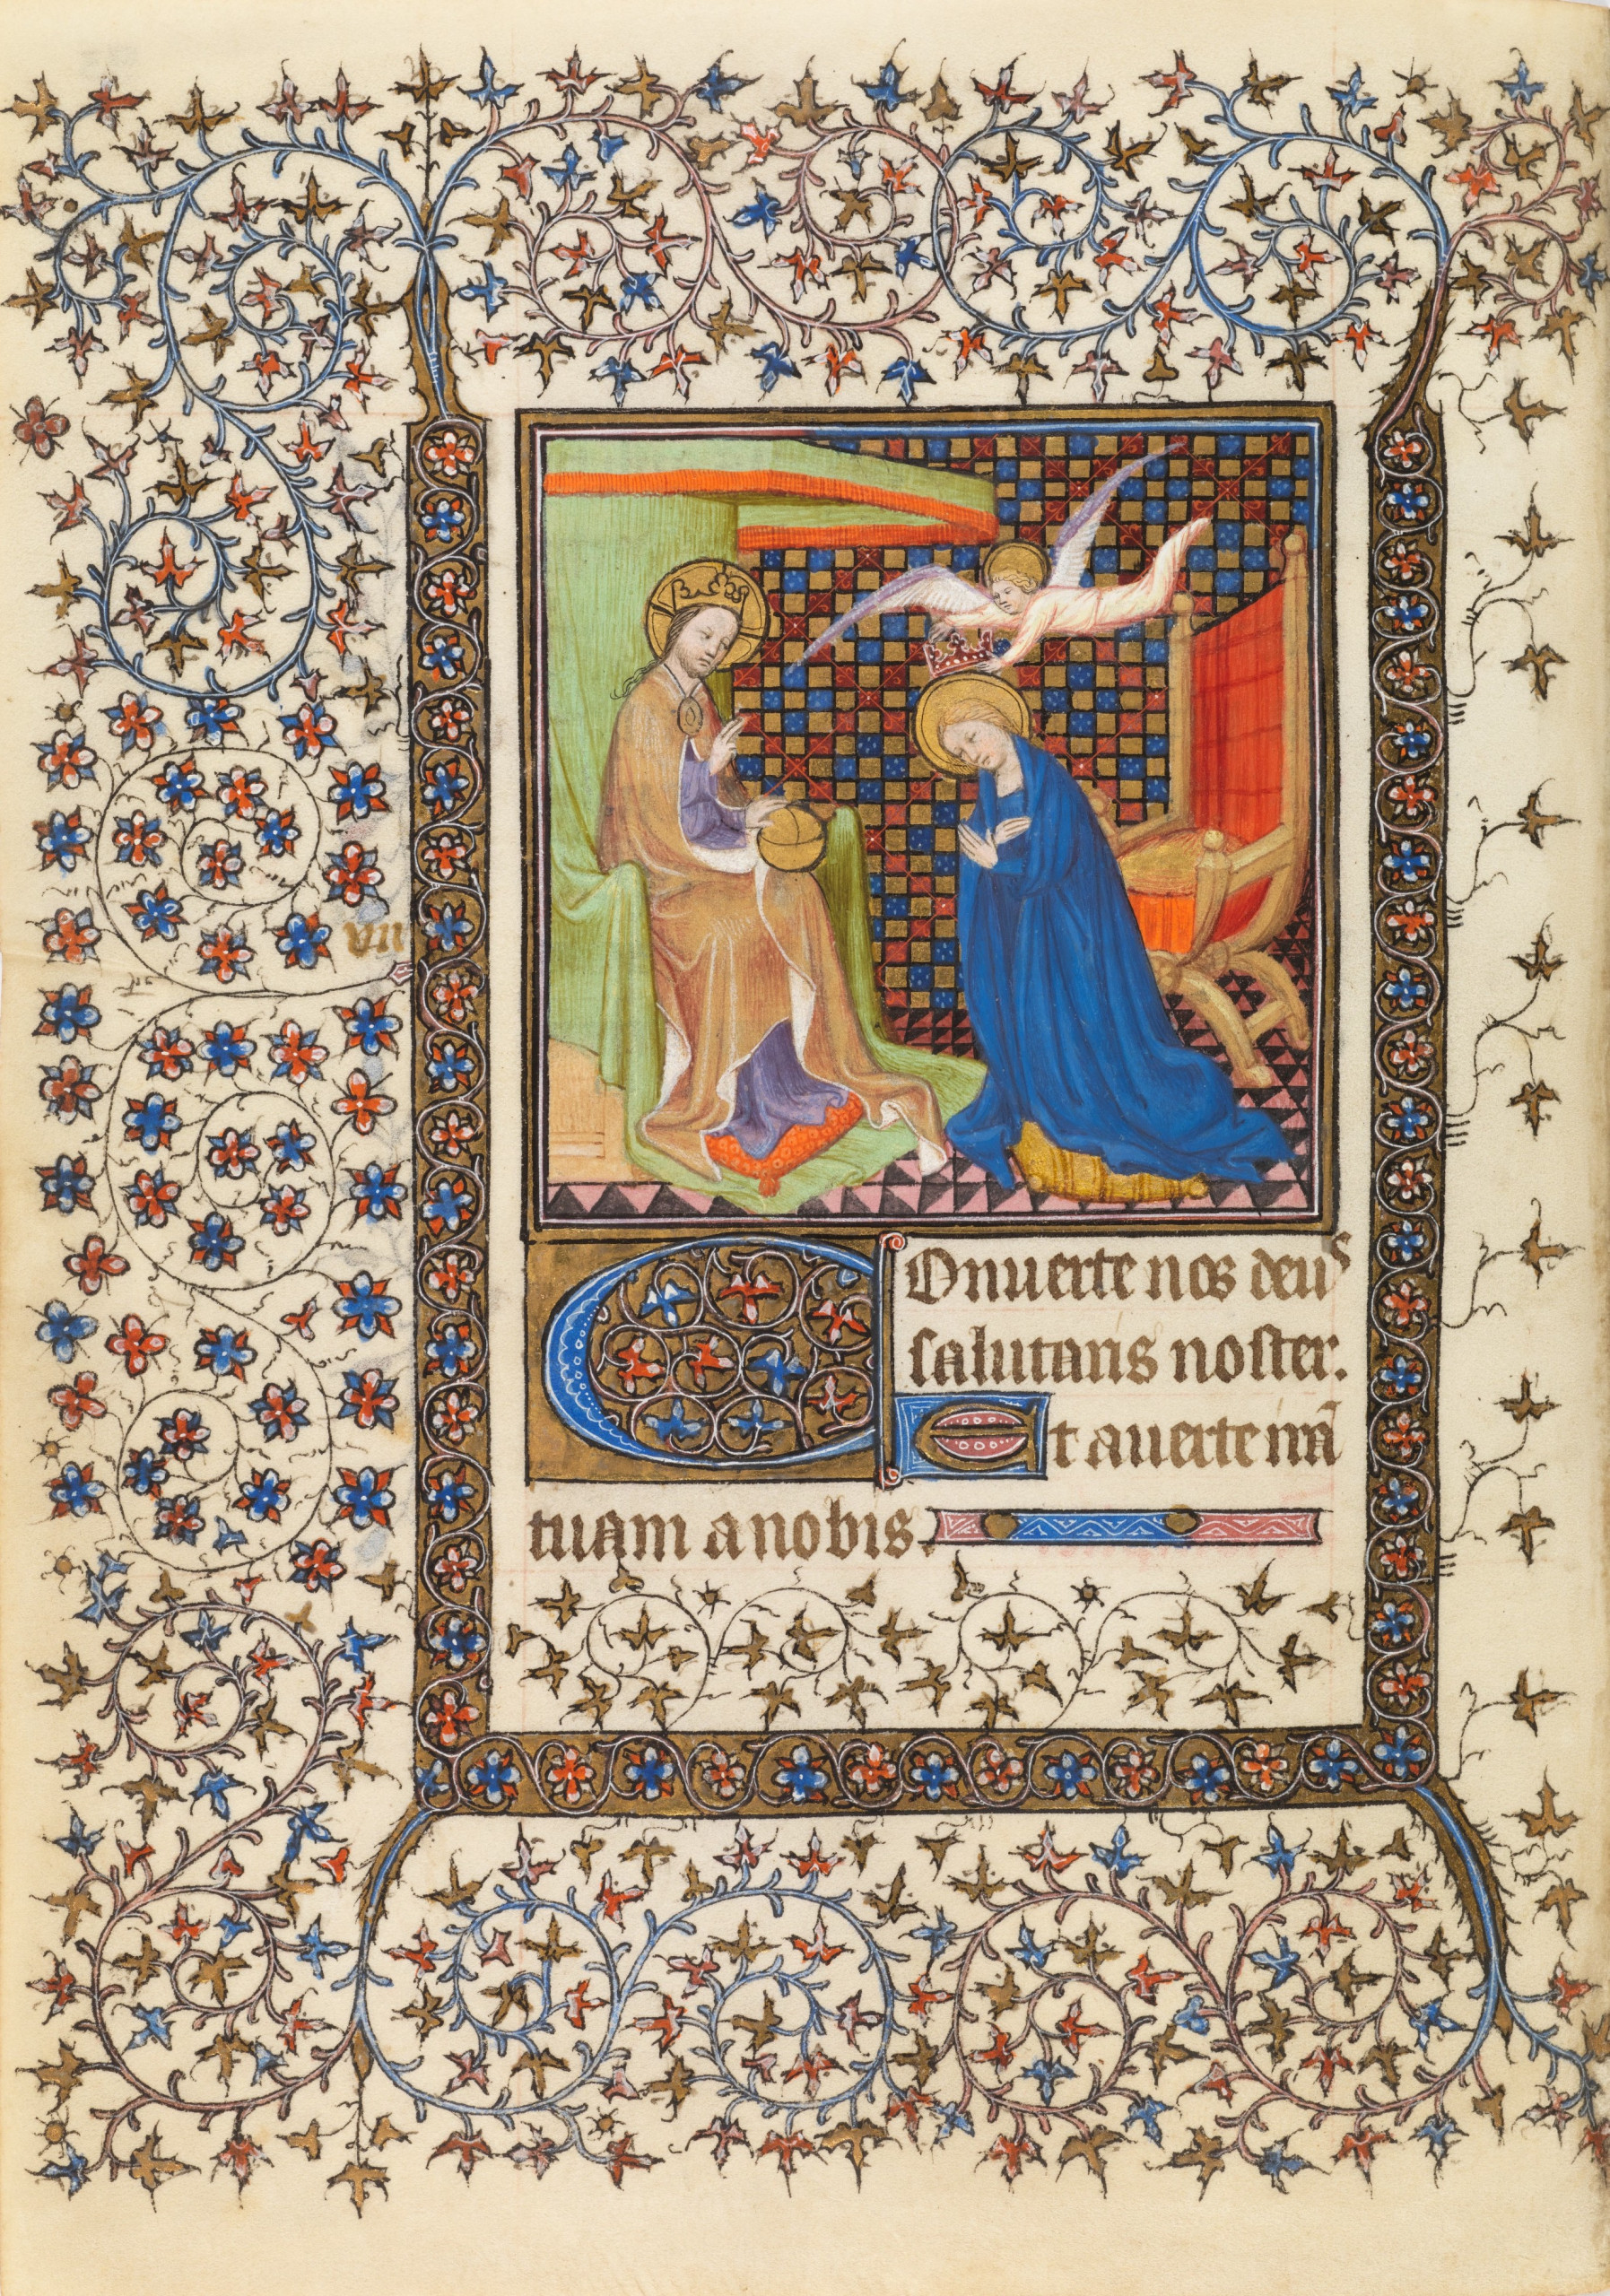 Conuerte nos deus
salutaris noster.
Et auerte irā
tuam a nobis.